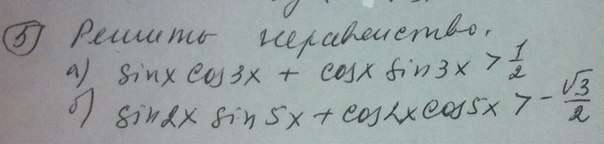 5) Решить неравенство.
а) sinx cos3x + cosx sin3x > 1/2
б) sin2x sin5x + cos2x cos5x > -√3/2